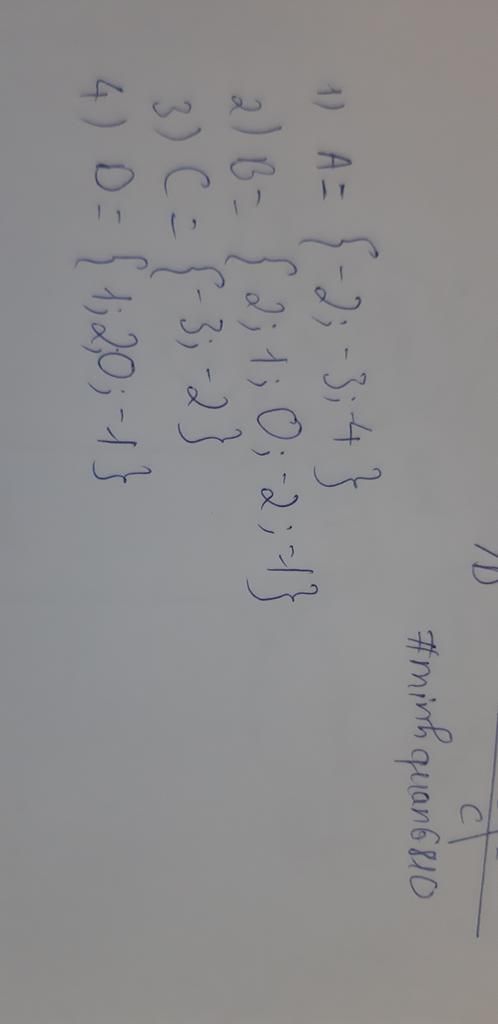 /D
C
#minhquan6810
1) A = {-2; -3; 4}
2) B = {2; 1; 0; -2; -1}
3) C = {-3; -2}
4) D = {1; 2; 0; -1}